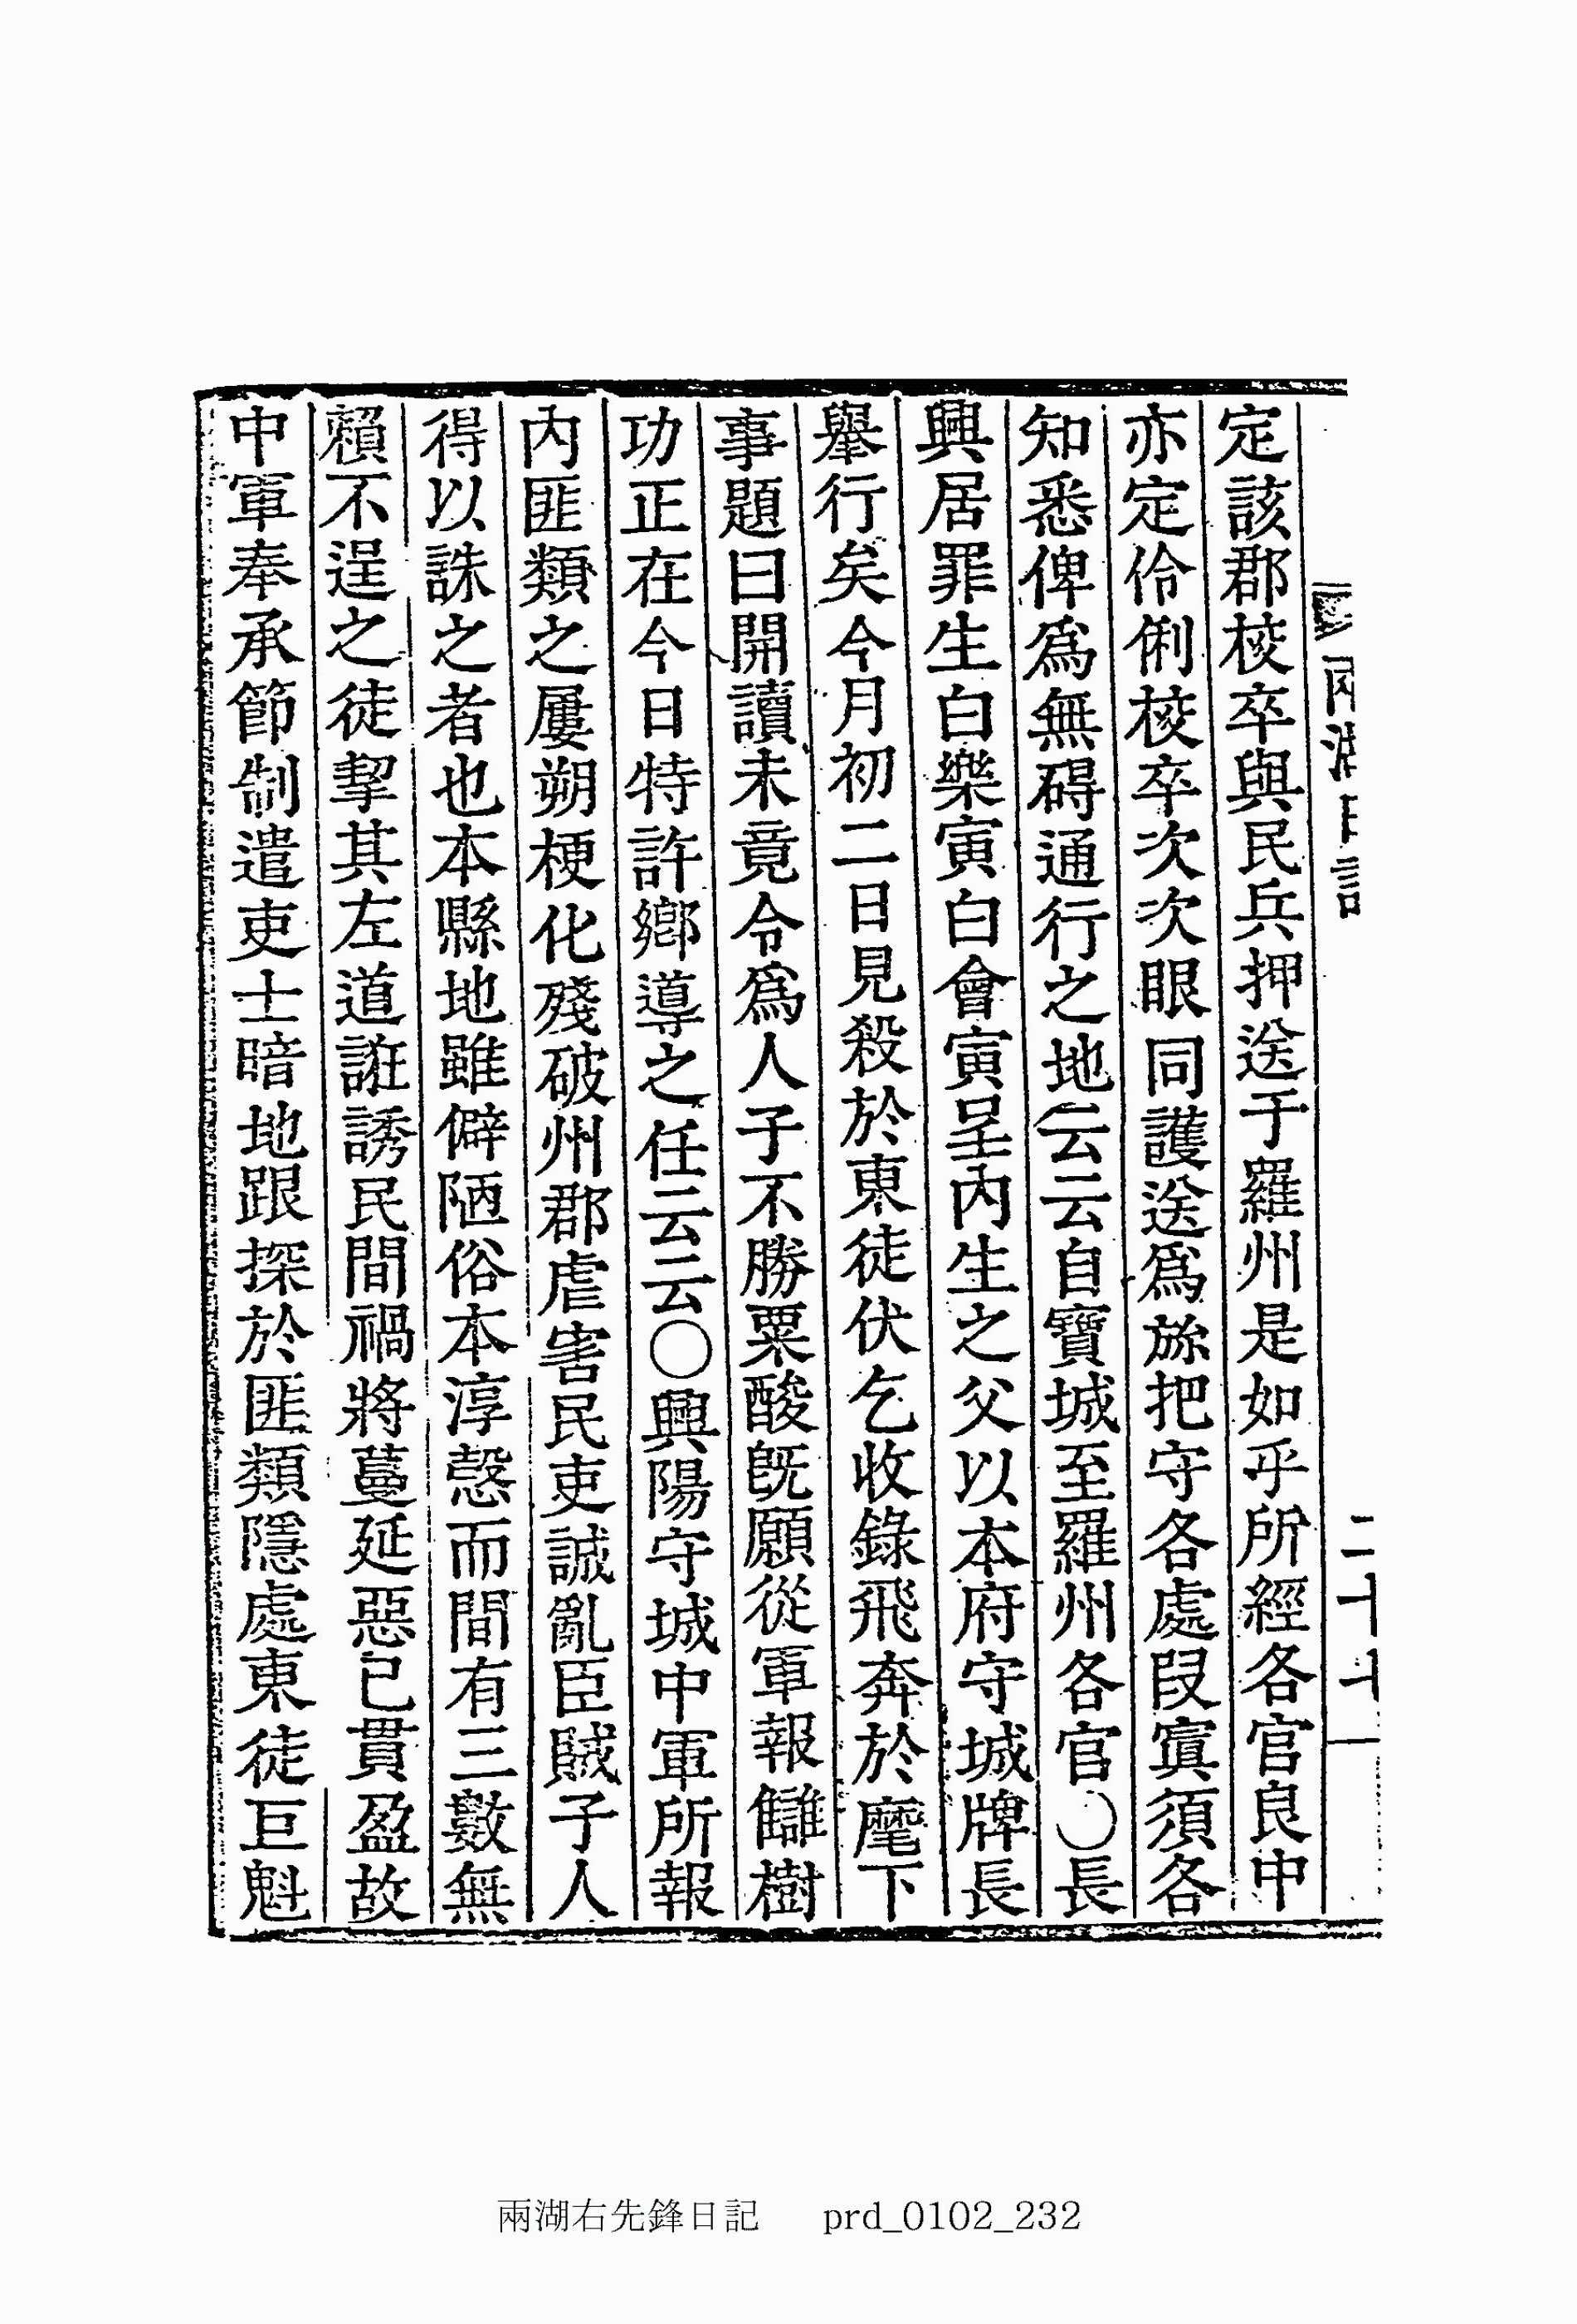 兩湖日記
二十七
定該郡校卒與民兵押送于羅州是如乎所經各官良中
亦定伶俐校卒次次眼同護送爲旀把守各處段寘須各
知悉俾爲無碍通行之地云云自寶城至羅州各官〇長
興居罪生白樂寅白會寅呈內生之父以本府守城牌長
舉行矣今月初二日見殺於東徒伏乞收錄飛奔於麾下
事題曰開讀未竟令爲人子不勝粟酸旣願從軍報讎樹
功正在今日特許鄕導之任云云〇興陽守城中軍所報
內匪類之屢朔梗化殘破州郡虐害民吏誠亂臣賊子人
得以誅之者也本縣地雖僻陋俗本淳慤而間有三數無
賴不逞之徒挈其左道誑誘民間禍將蔓延惡已貫盈故
中軍奉承節制遣吏士暗地跟探於匪類隱處東徒巨魁
兩湖右先鋒日記 prd_0102_232